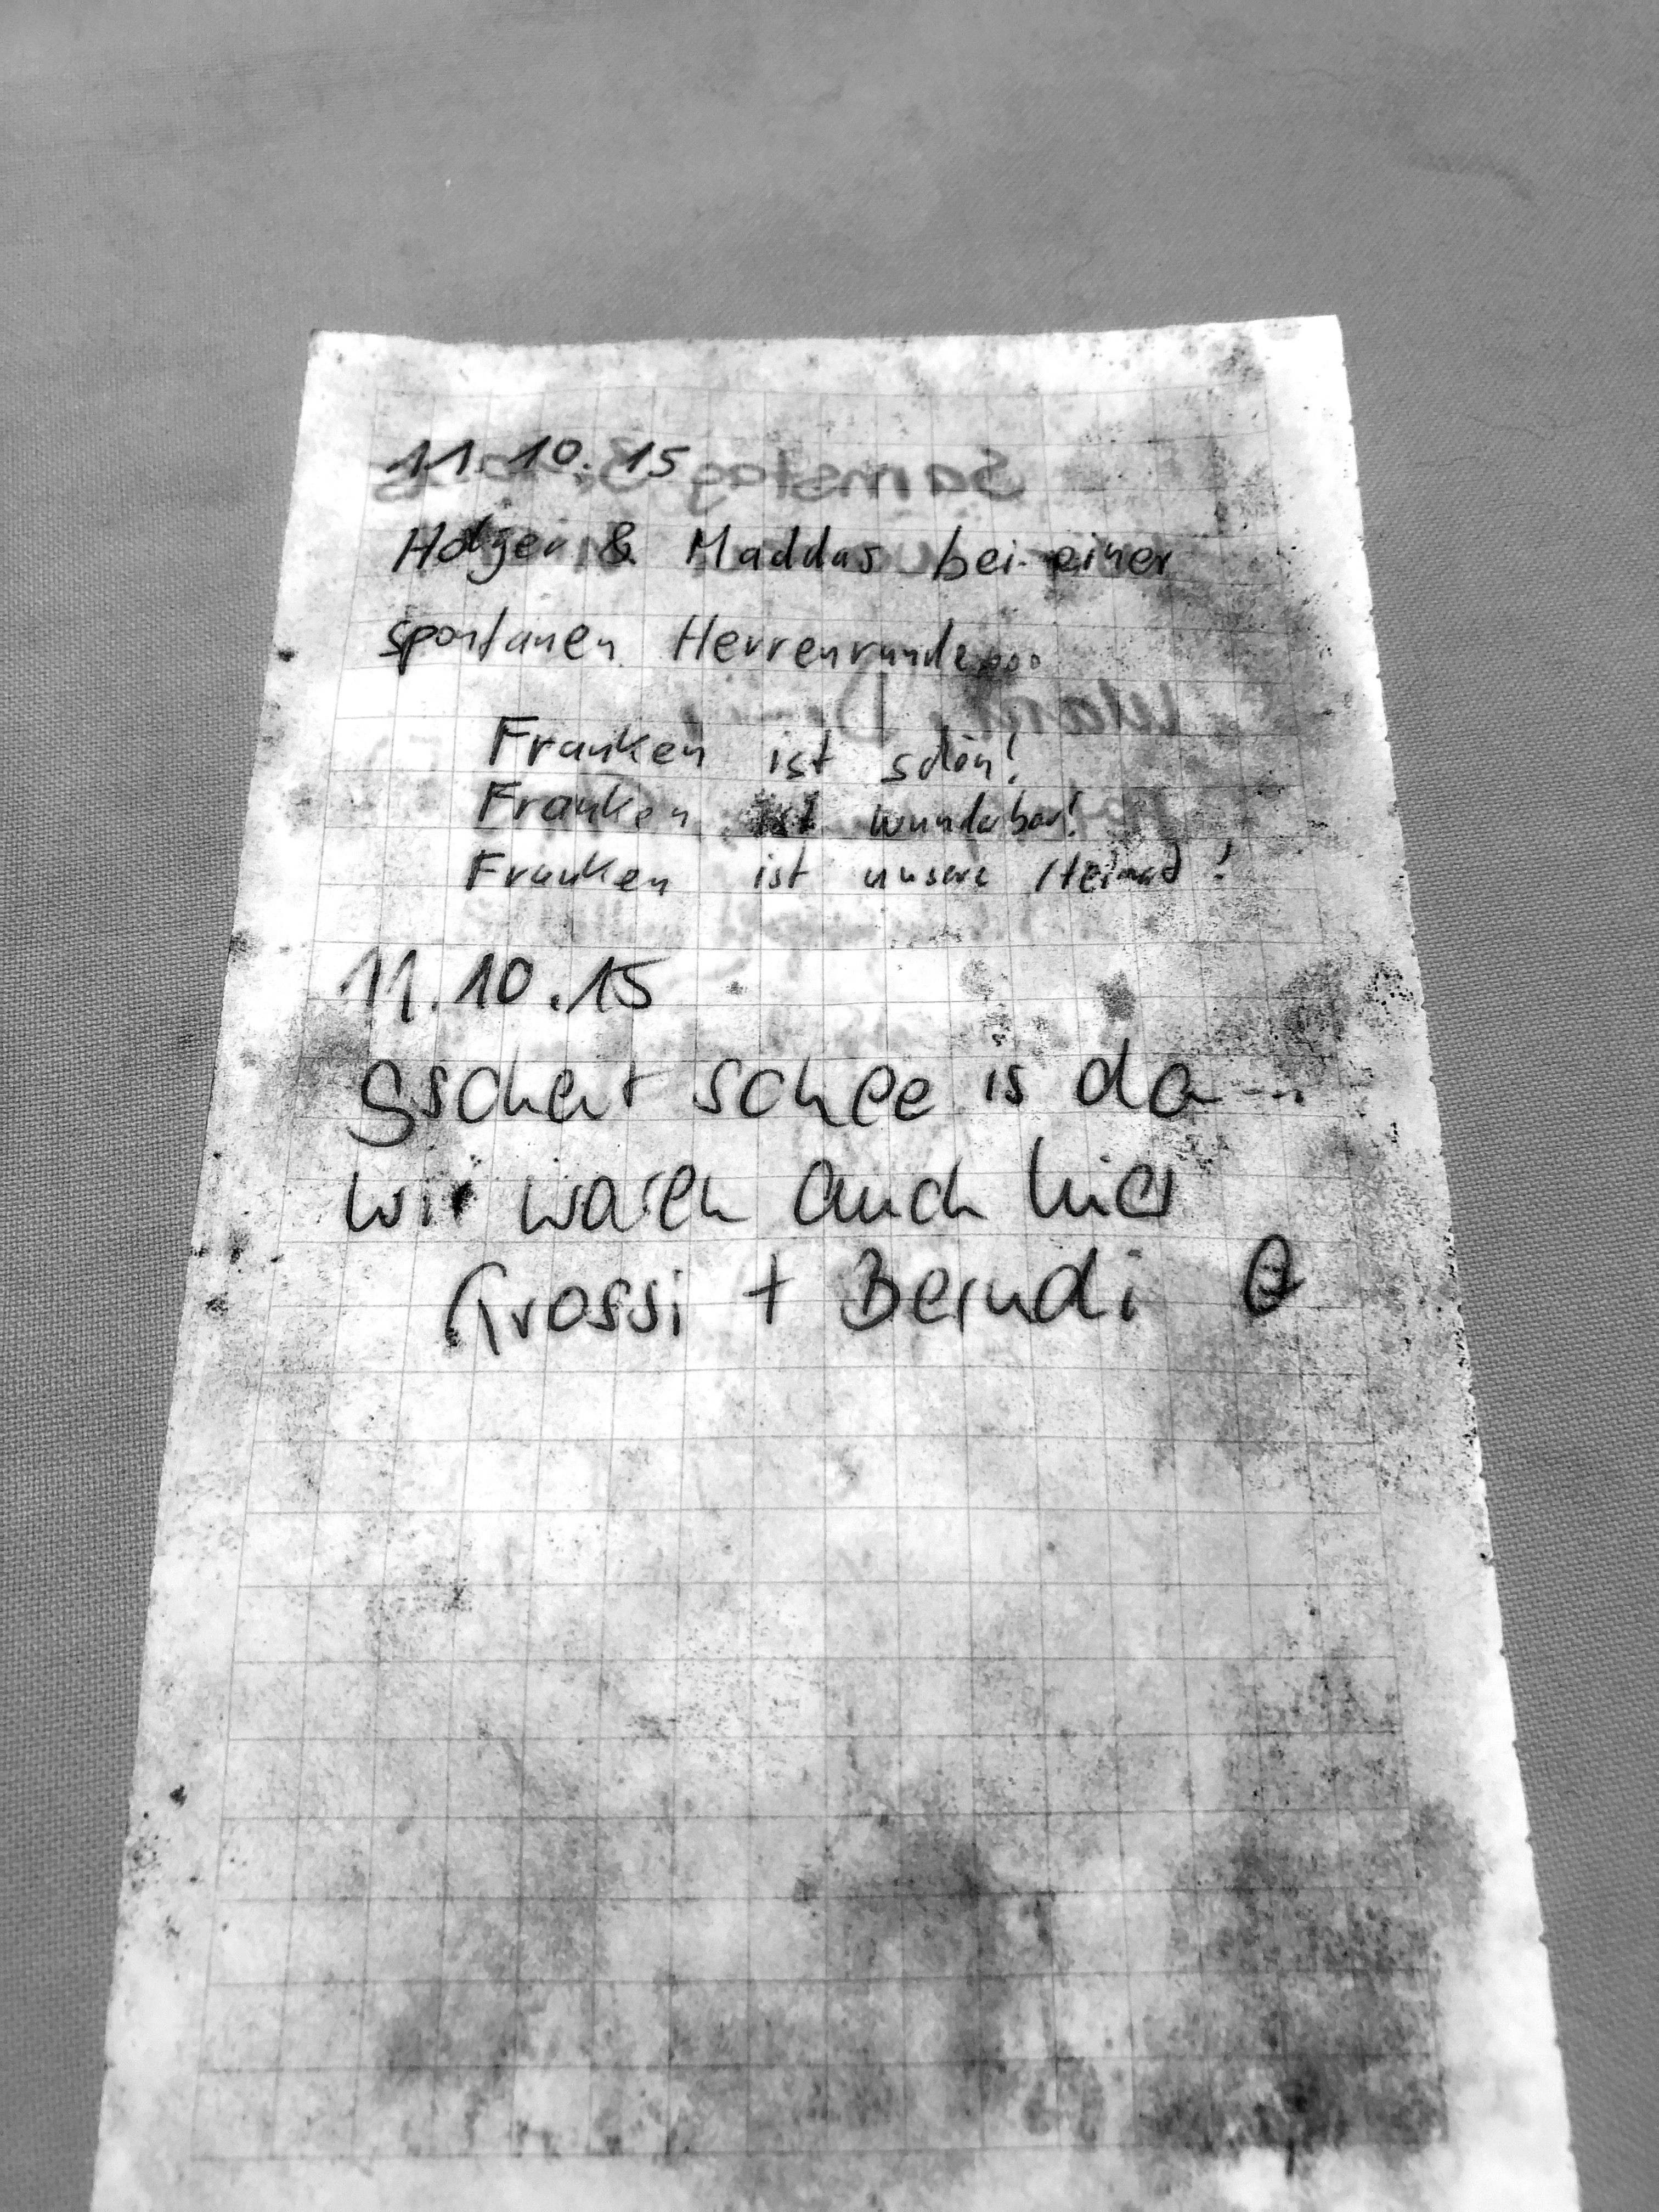 11.10.15
Holger & Maddas bei einer
spontanen Herrenrunde...
Franken ist schön!
Franken ist wunderbar!
Franken ist unsere Heimat!
11.10.15
Gscheit schee is da...
wir waren auch hier
Grossi + Berndi
Samstag